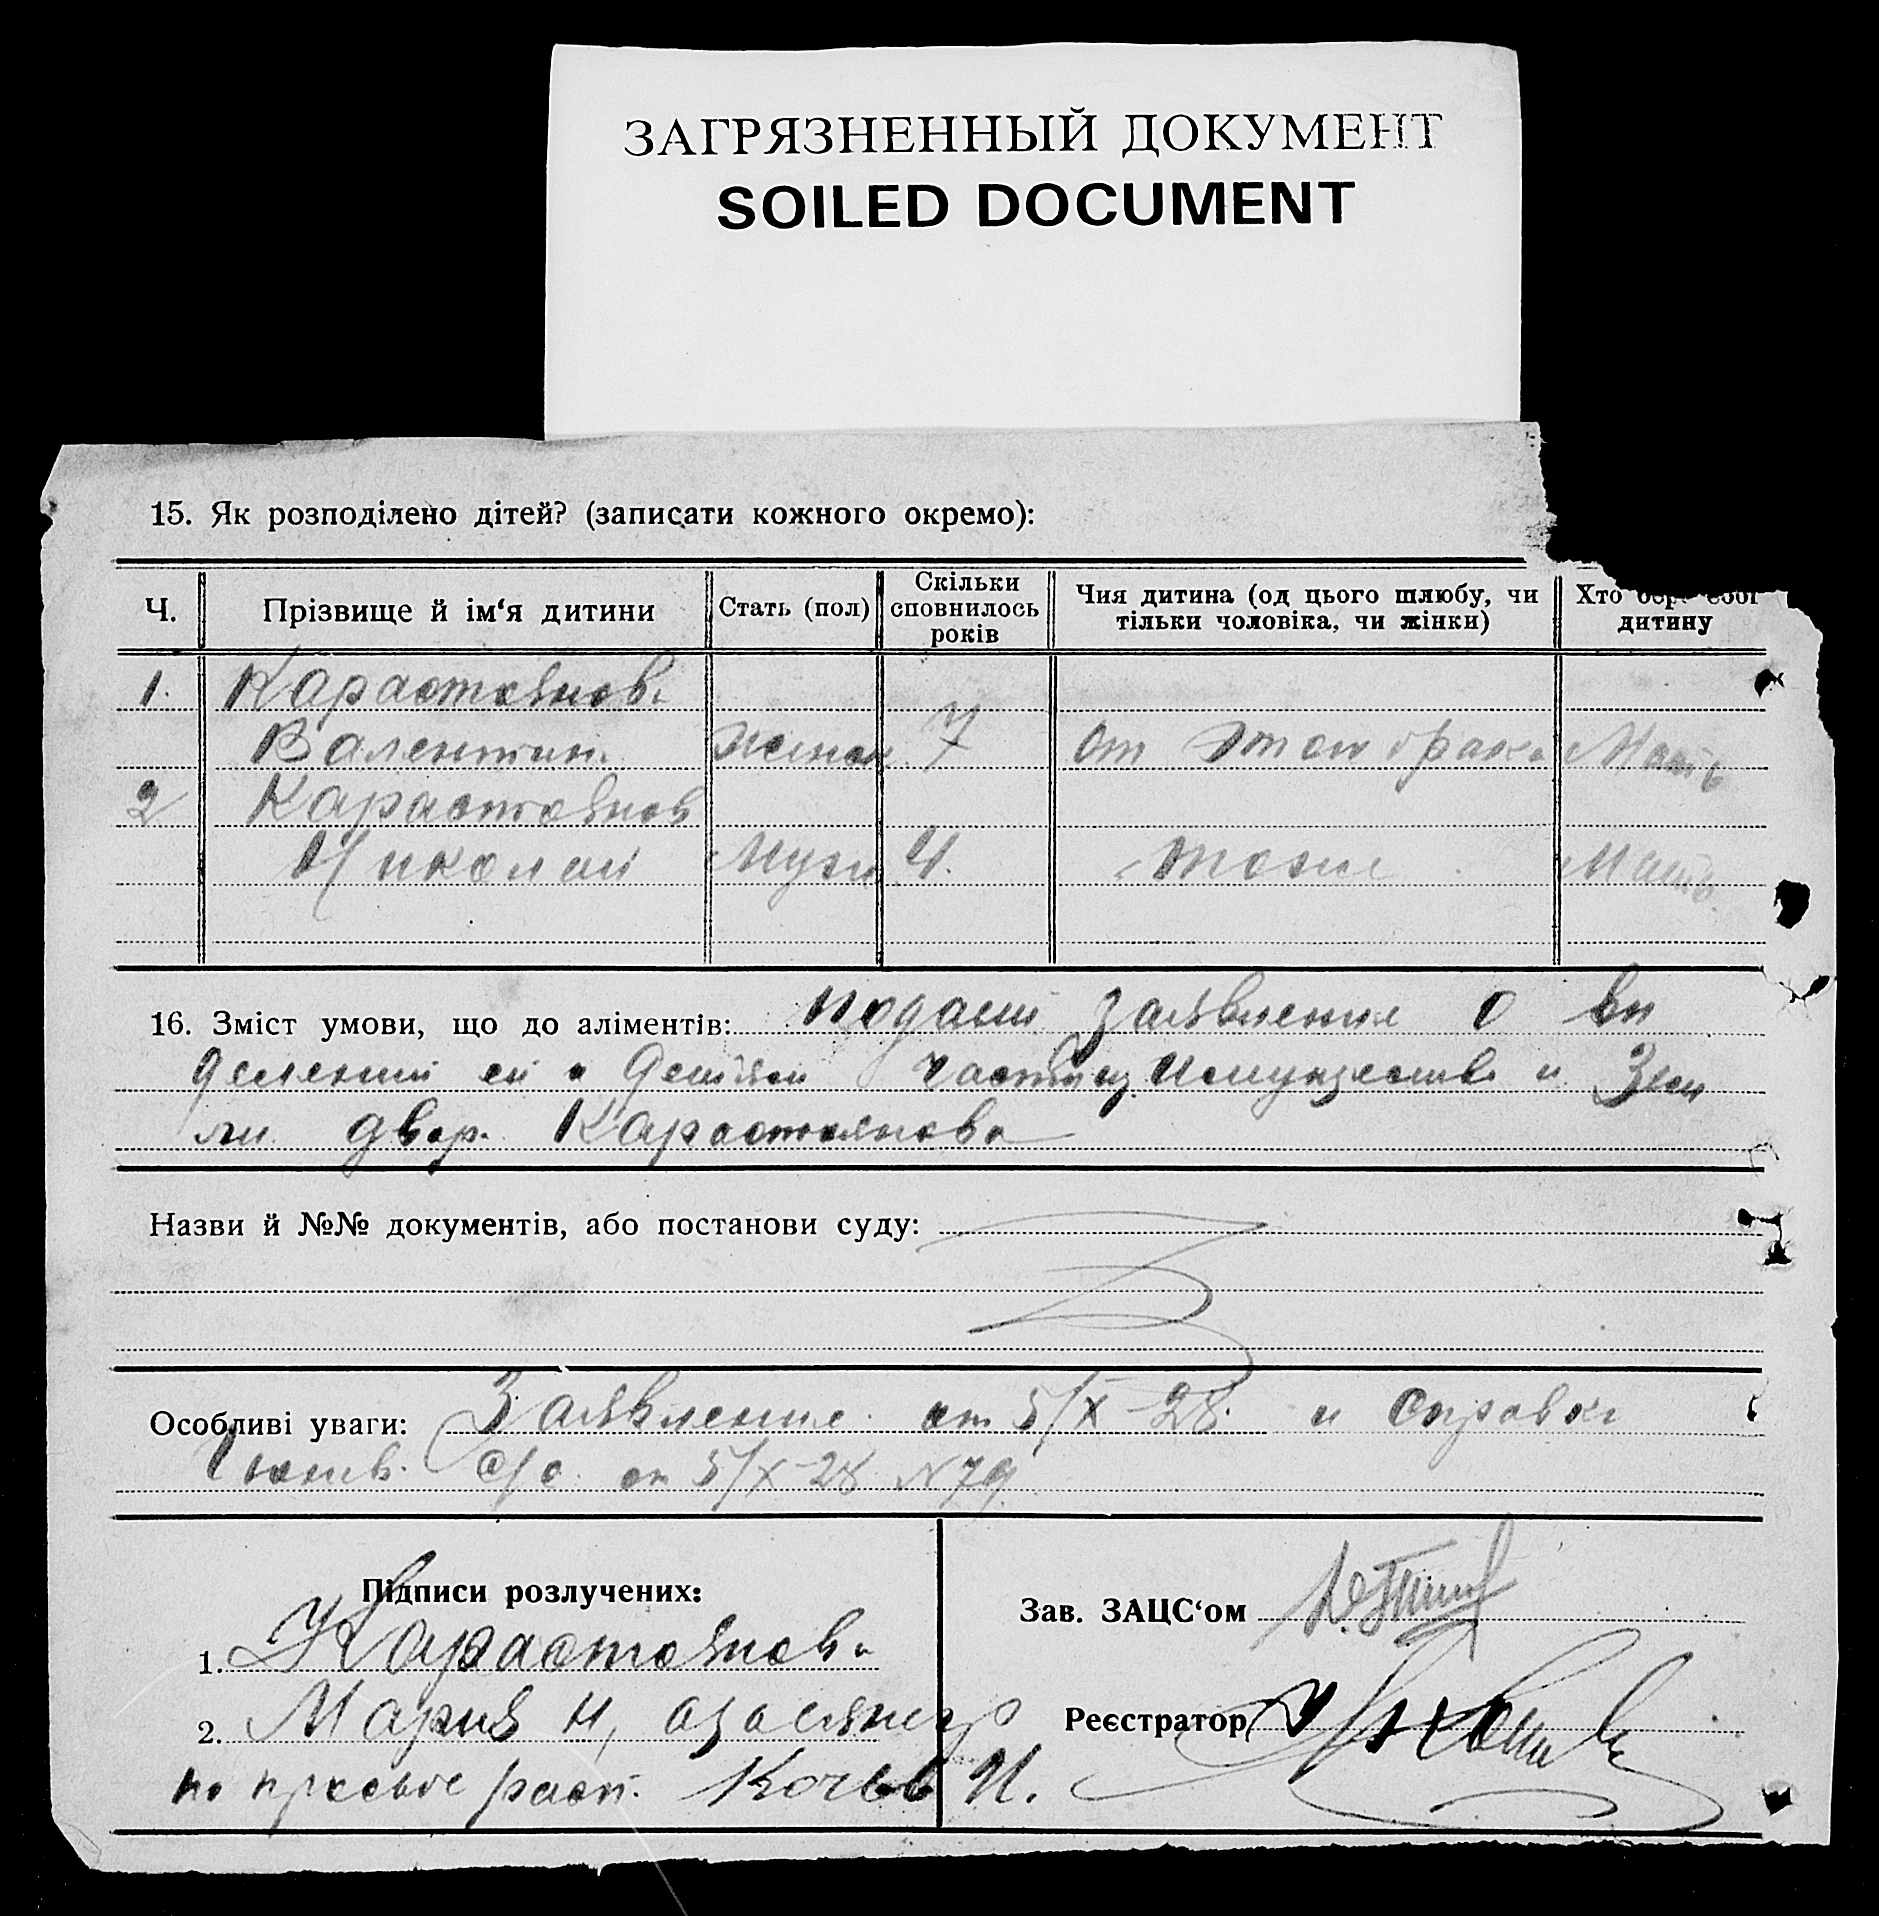 ЗАГРЯЗНЕННЫЙ ДОКУМЕНТ
SOILED DOCUMENT
15. Як розподілено дітей? (записати кожного окремо):
Ч. Прізвище й ім‘я дитини Стать (пол) Скільки сповнилось років Чия дитина (од цього шлюбу, чи тільки чоловіка, чи жінки) Хто дитину
1. Карастоянов.
Валентин. 7 от этого брака Мать
2 Карастоянов
Николай Муж 4. тоже Мать
16. Зміст умови, що до аліментів: заявление о вы
деление ей и детям части имущества и Зем
ли двор. Карастоянова
Назви й №№ документів, або постанови суду:
Особливі уваги: Заявление от 5/X-28. и справки
с/с. от 5/X-28 N79
Підписи розлучених:
1. Карастоянов.
2. Мария Н,
по просьбе расп. И.
Зав. ЗАЦС‘ом
Реєстратор